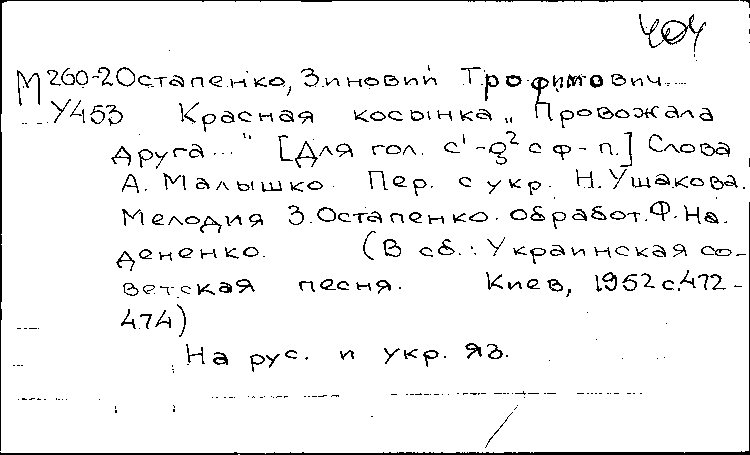 404
М 260-2 Остапенко, Зиновий Трофимович.
У453 Красная косынка „Провожала
друга..." [Для гол. c¹-g² с ф-п.] Слова
А. Малышко. Пер. с укр. Н. Ушакова.
Мелодия З. Остапенко. обработ. Ф. На.
дененко. (В сб.: Украинская со-
ветская песня. Киев, 1952 с. 472-
474)
На рус. и укр. яз.